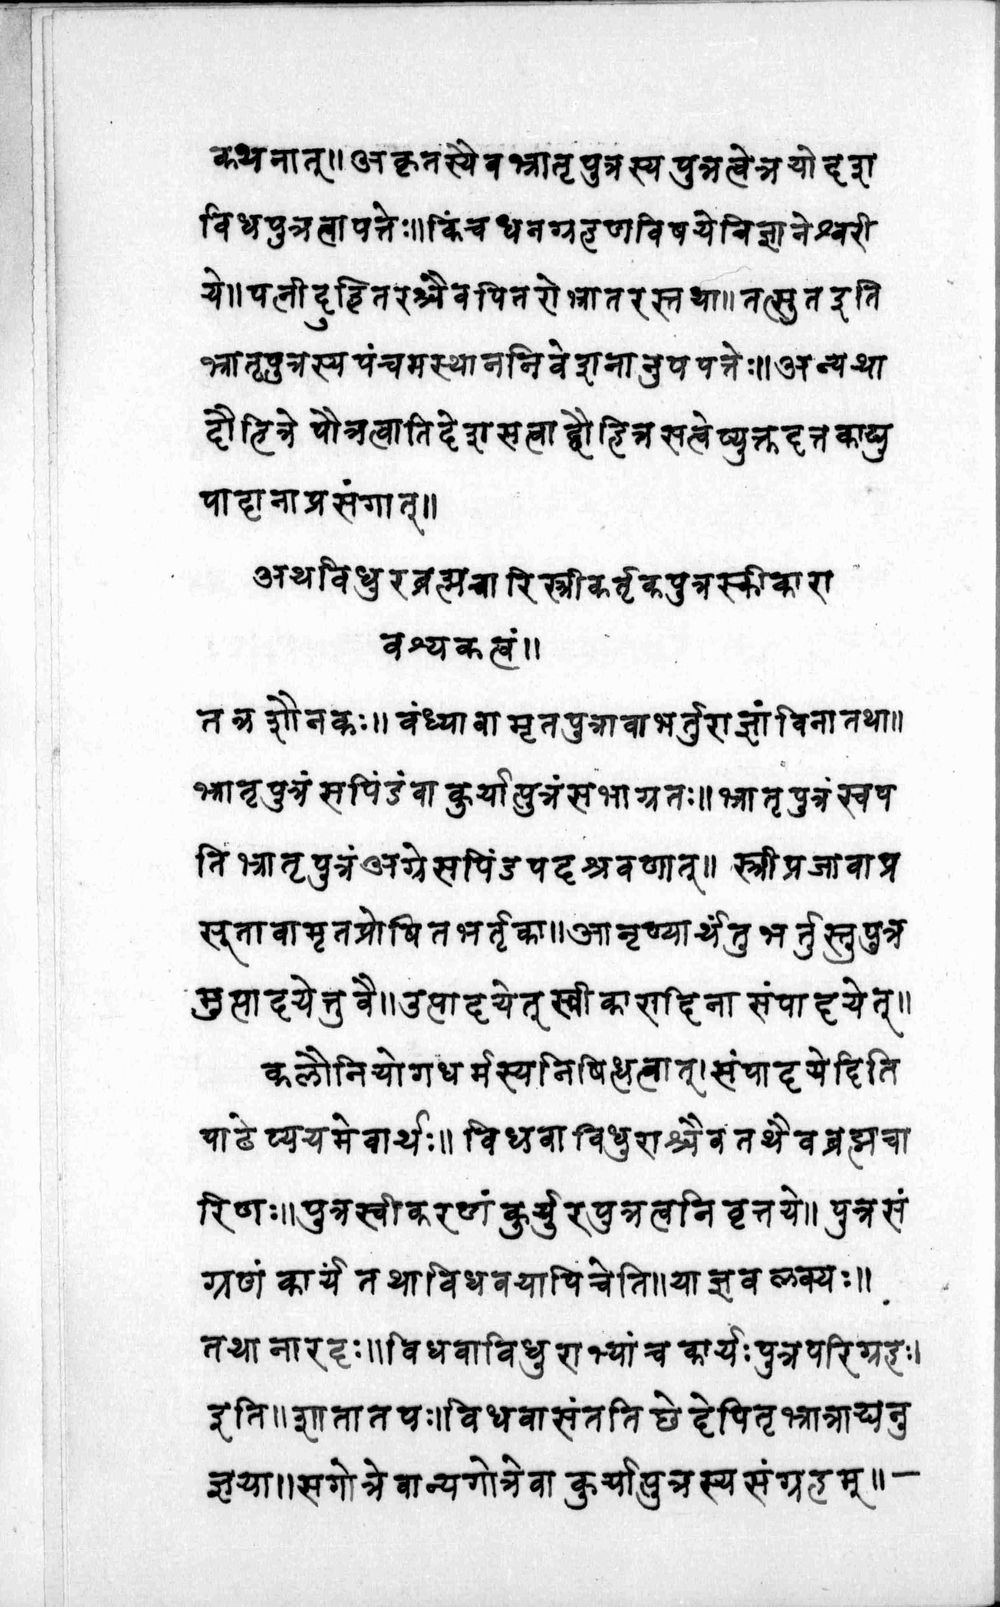 कथनात्॥अकृतस्यैवभ्रातृपुत्रस्यपुत्रत्वेत्रयोदश
विधपुत्रत्वापत्तेः॥किंचधनग्रहणविषयेविज्ञानेश्वरी
ये॥पत्नीदुहितरश्चैवपितरोभ्रातरस्तथा॥तत्सुतइति
भ्रातृपुत्रस्यपंचमस्थाननिवेशनानुपपत्तेः॥अन्यथा
दौहित्रेपौत्रत्वातिदेशसत्वाद्दौहित्रसत्वेप्युक्तदत्तकाद्यु
पादानाप्रसंगात्॥
अथविधुरब्रह्मचारिस्त्रीकर्तृकपुत्रस्वीकारा
वश्यकत्वं॥
तत्रशौनकः॥वंध्यावामृतपुत्रावाभर्तुराज्ञांविनातथा॥
भ्रातृपुत्रंसपिंडंवाकुर्यात्पुत्रंसभाग्रतः॥भ्रातृपुत्रंस्वप
तिभ्रातृपुत्रंअग्रेसपिंडपदश्रवणात्॥स्त्रीप्रजावाप्र
सूतावामृतप्रोषितभर्तृका॥आनृण्यार्थंतुभर्तुस्तुपुत्र
मुत्पादयेत्तुवै॥उत्पादयेत्स्वीकारादिनासंपादयेत्॥
कलौनियोगधर्मस्यनिषिद्धत्वात्।संपादयेदिति
पाठेप्ययमेवार्थः॥विधवाविधुराश्चैवतथैवब्रह्मचा
रिणः॥पुत्रस्वीकरणंकुर्युरपुत्रत्वनिवृत्तये॥पुत्रसं
ग्रणंकार्यंतथाविधवयापिचेति॥याज्ञवल्क्यः॥
तथानारदः॥विधवाविधुराभ्यांचकार्यःपुत्रपरिग्रहः।
इति॥शातातपः॥विधवासंततिछेदेपितृभ्रात्राद्यनु
ज्ञया॥सगोत्रेवान्यगोत्रेवाकुर्यात्पुत्रस्यसंग्रहम्॥—